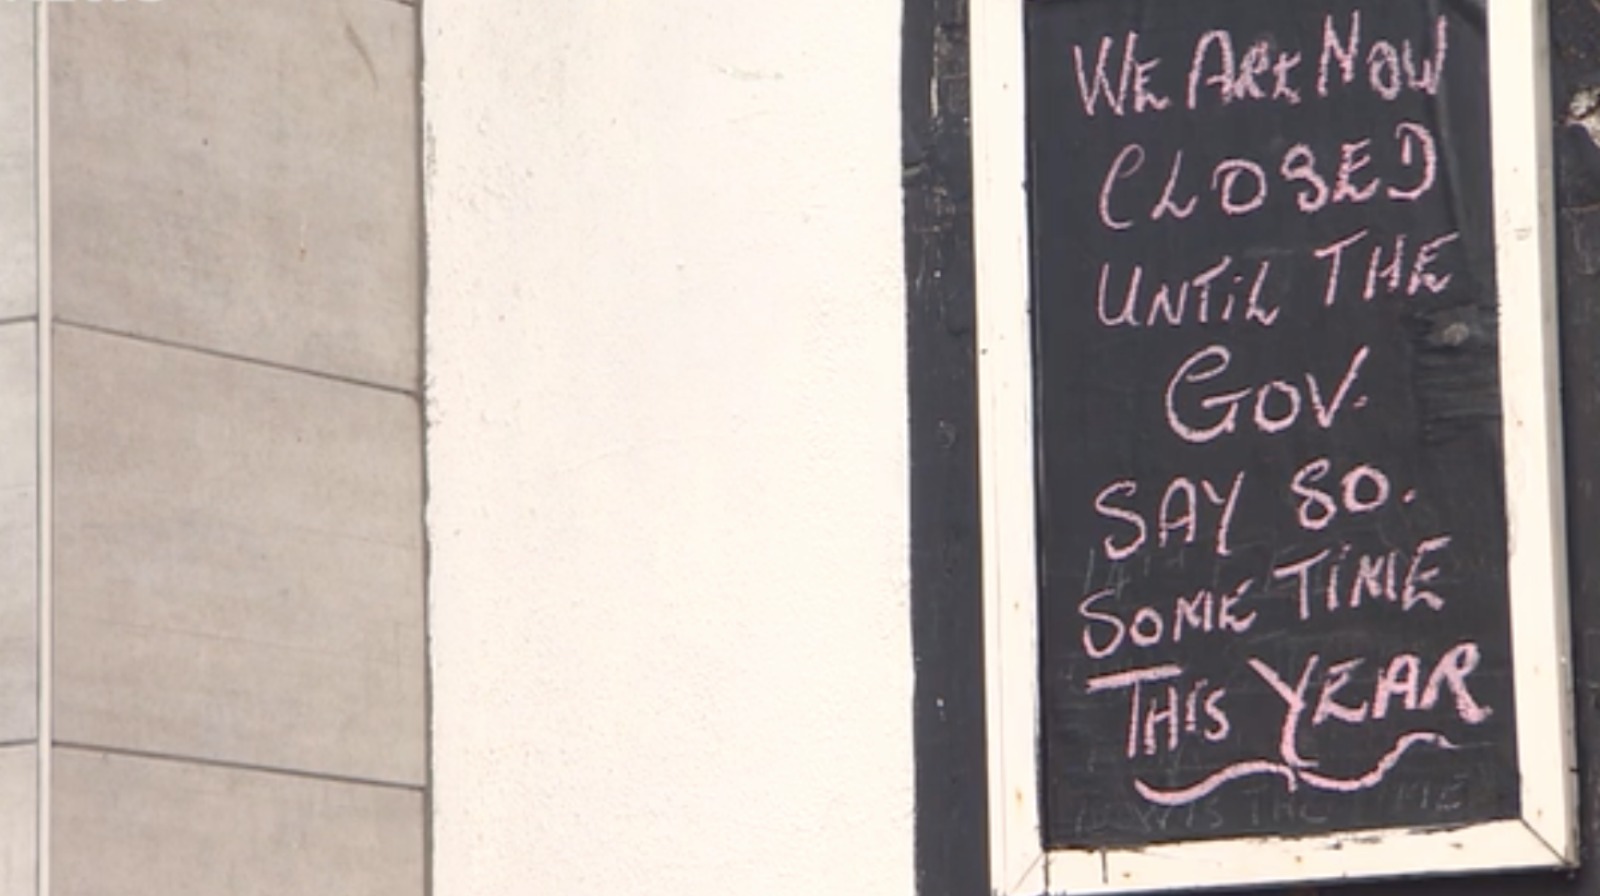 WE ARE NOW
CLOSED
UNTiL THE
GOV.
SAY SO.
SOME TiME
THiS YEAR